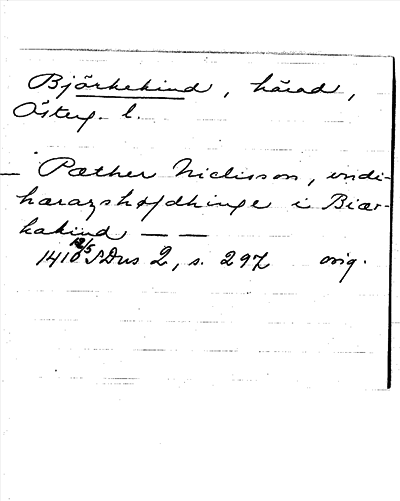 Björkekind, härad,
Österg. l.
— Pæther Niclisson, vndi-
harazshøfdhinge i Biær-
kakind — —
1410 12/5 SDns 2, s. 297 orig.